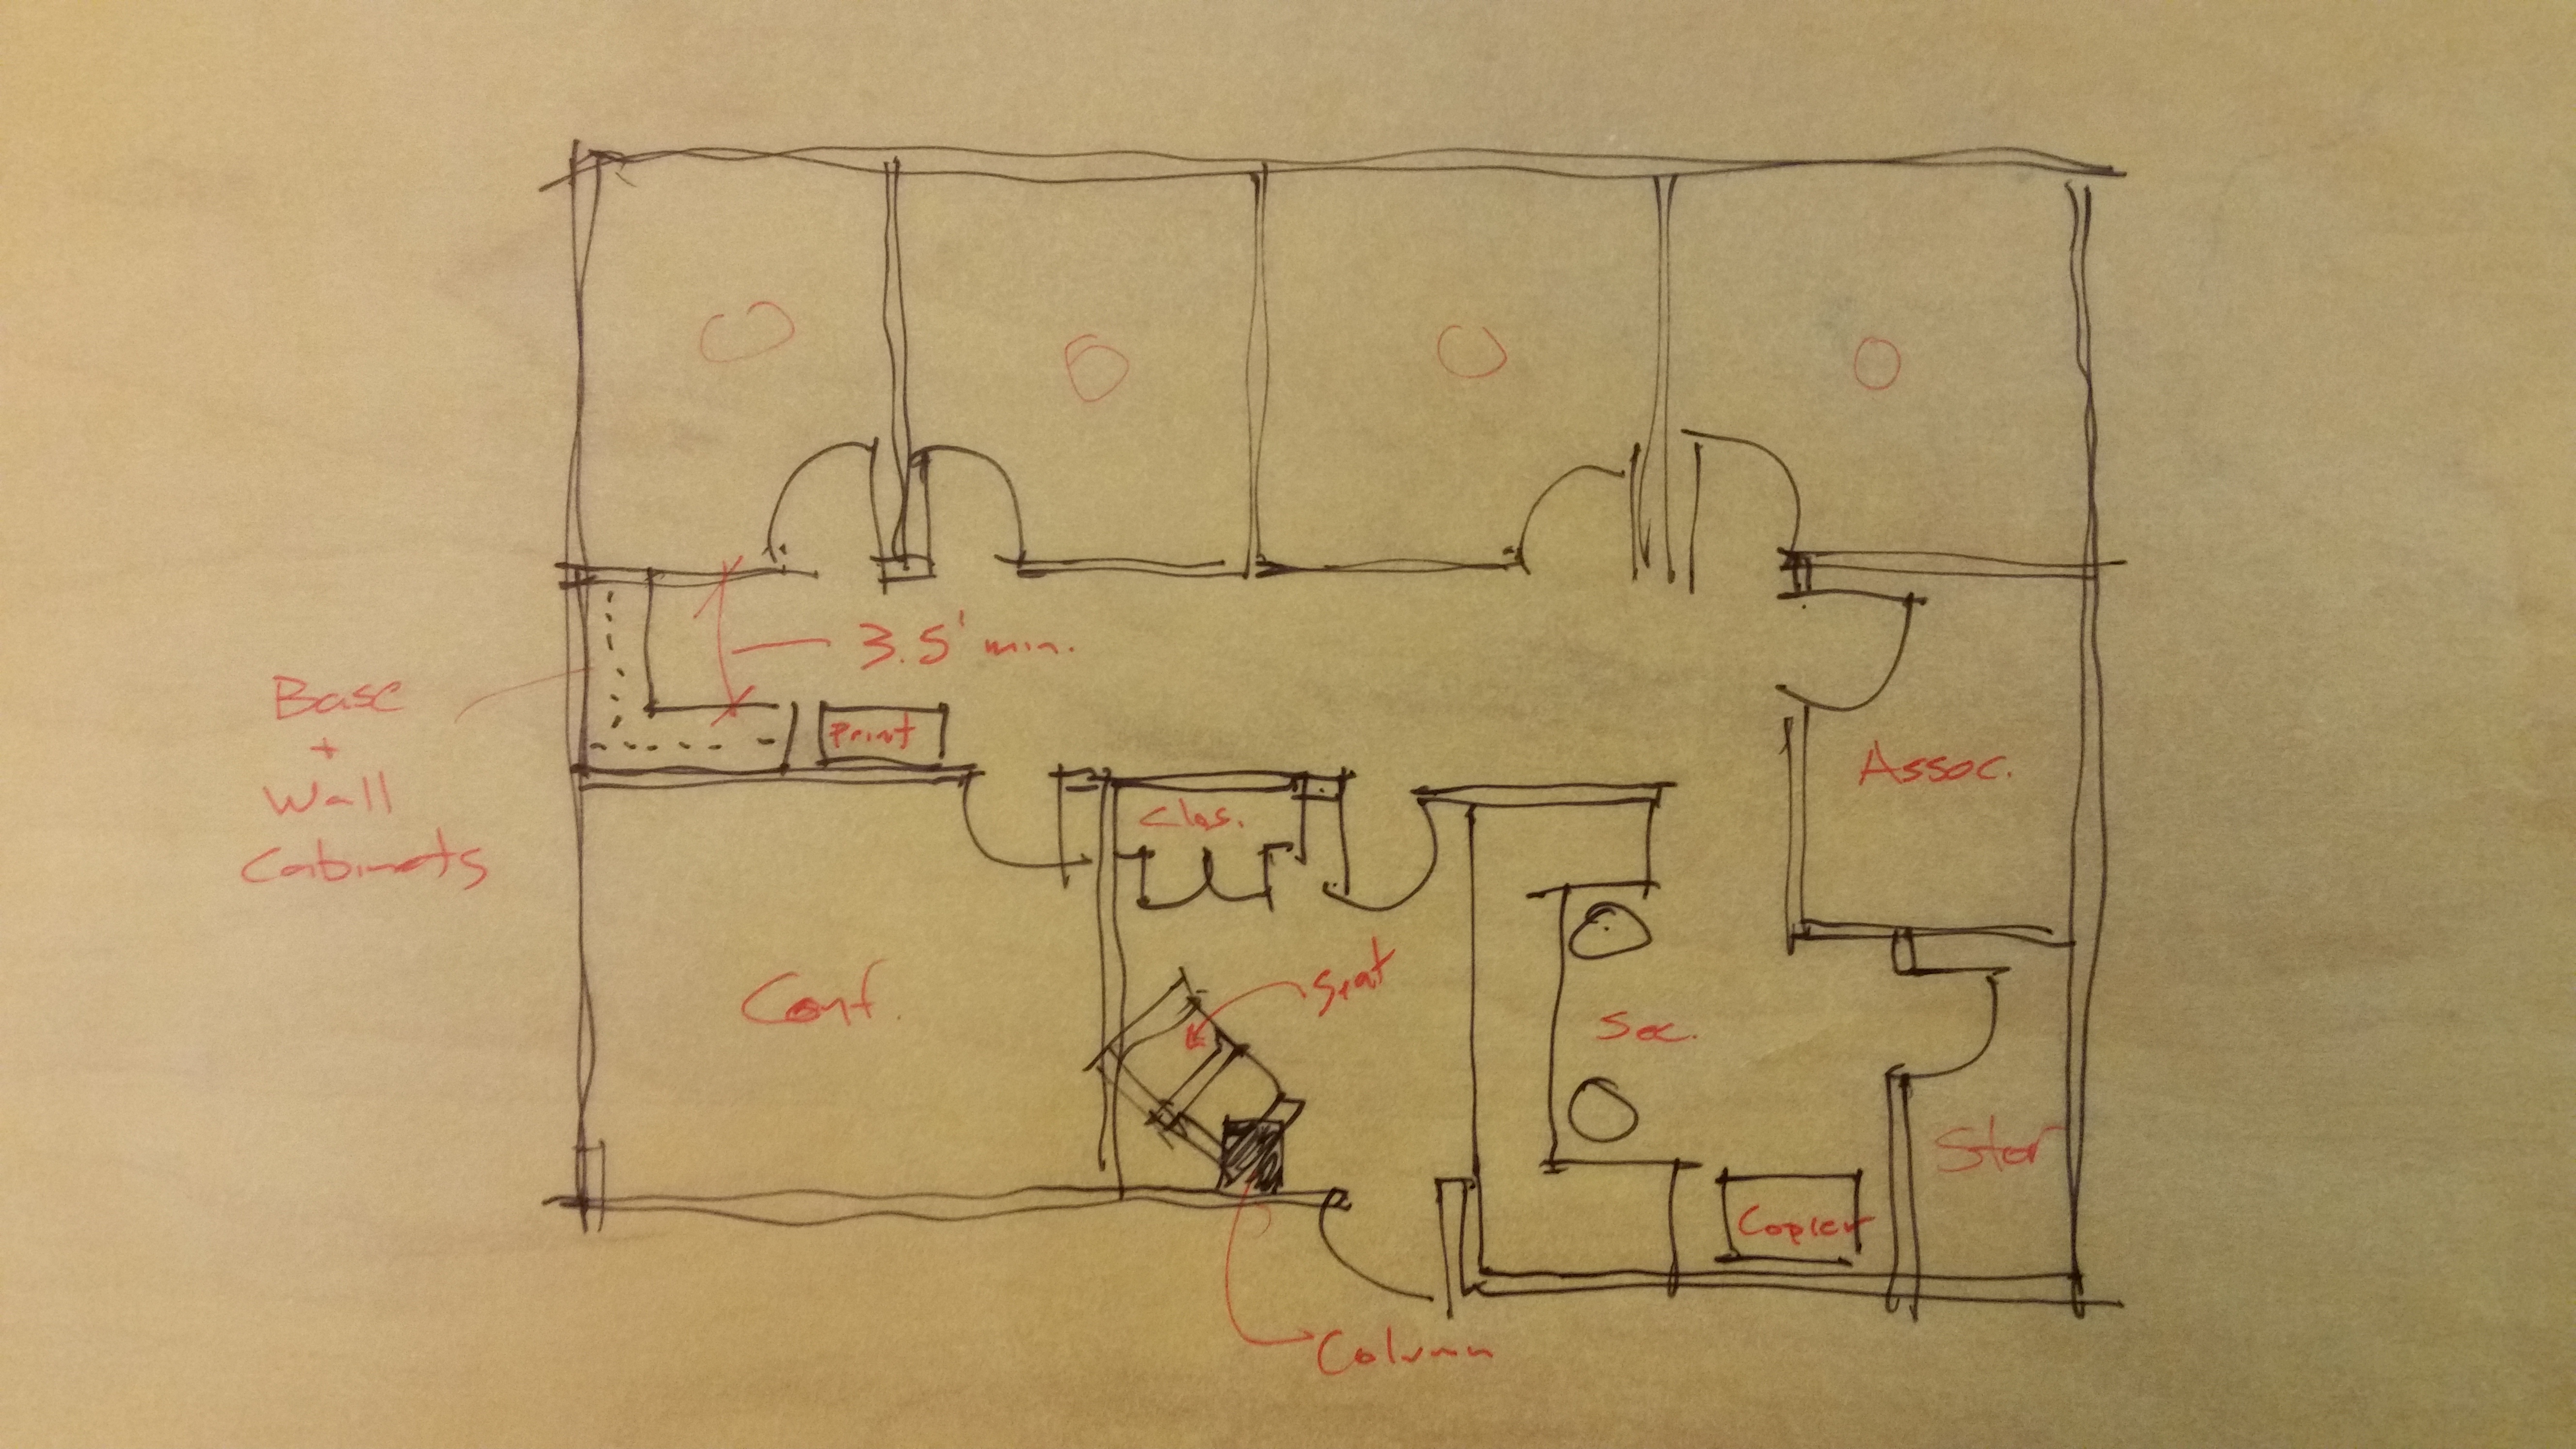 O
O
O
O
3.5' min.
Base
+
Wall
Cabinets
Print
Assoc.
Clos.
Seat
Conf.
Sec.
Stor
Copier
Column